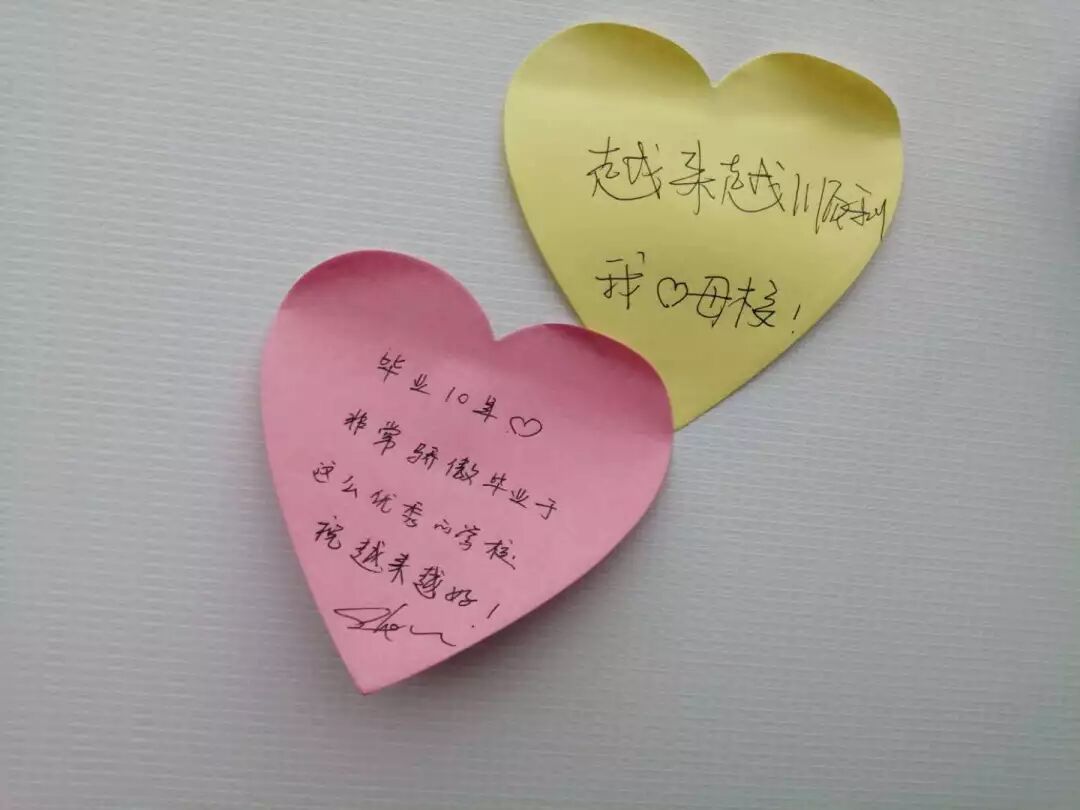 越来越顺利
我♡母校!
毕业10年♡
非常骄傲毕业于
这么优秀的学校
祝越来越好!